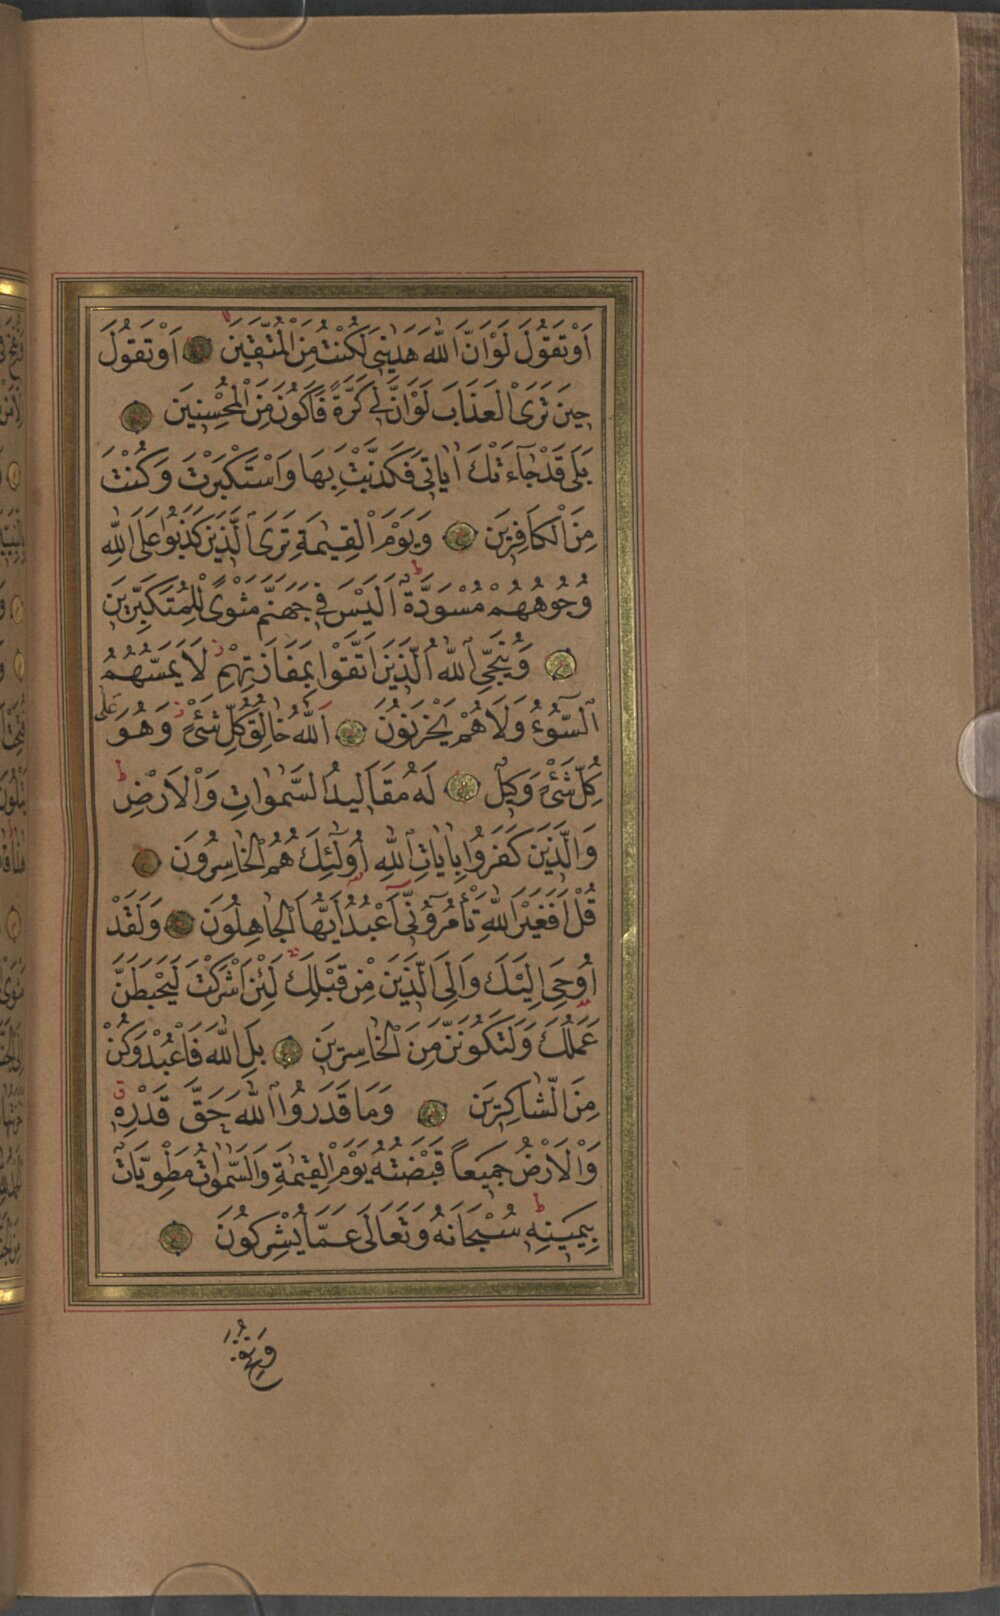 اَوْ تَقُولَ لَوْ اَنَّ اللّٰهَ هَدٰينِى لَكُنْتُ مِنَ الْمُتَّقِينَ اَوْ تَقُولَ
حِينَ تَرَى الْعَذَابَ لَوْ اَنَّ لِى كَرَّةً فَاَكُونَ مِنَ الْمُحْسِنِينَ
بَلٰى قَدْ جَٓاءَتْكَ اٰيَاتِى فَكَذَّبْتَ بِهَا وَاسْتَكْبَرْتَ وَكُنْتَ
مِنَ الْكَافِرِينَ وَيَوْمَ الْقِيٰمَةِ تَرَى الَّذِينَ كَذَبُوا عَلَى اللّٰهِ
وُجُوهُهُمْ مُسْوَدَّةٌ اَلَيْسَ فِى جَهَنَّمَ مَثْوًى لِلْمُتَكَبِّرِينَ
وَيُنَجِّى اللّٰهُ الَّذِينَ اتَّقَوْا بِمَفَازَتِهِمْ لَا يَمَسُّهُمُ
السُّٓوءُ وَلَا هُمْ يَحْزَنُونَ اَللّٰهُ خَالِقُ كُلِّ شَىْءٍ وَهُوَ عَلٰى
كُلِّ شَىْءٍ وَكِيلٌ لَهُ مَقَالِيدُ السَّمٰوَاتِ وَالْاَرْضِ
وَالَّذِينَ كَفَرُوا بِاٰيَاتِ اللّٰهِ اُولٰٓئِكَ هُمُ الْخَاسِرُونَ
قُلْ اَفَغَيْرَ اللّٰهِ تَأْمُرُٓونِّٓى اَعْبُدُ اَيُّهَا الْجَاهِلُونَ وَلَقَدْ
اُوحِىَ اِلَيْكَ وَاِلَى الَّذِينَ مِنْ قَبْلِكَ لَئِنْ اَشْرَكْتَ لَيَحْبَطَنَّ
عَمَلُكَ وَلَتَكُونَنَّ مِنَ الْخَاسِرِينَ بَلِ اللّٰهَ فَاعْبُدْ وَكُنْ
مِنَ الشَّاكِرِينَ وَمَا قَدَرُوا اللّٰهَ حَقَّ قَدْرِهِ
وَالْاَرْضُ جَمِيعاً قَبْضَتُهُ يَوْمَ الْقِيٰمَةِ وَالسَّمٰوَاتُ مَطْوِيَّاتٌ
بِيَمِينِهِ سُبْحَانَهُ وَتَعَالٰى عَمَّا يُشْرِكُونَ
وَنُفِخَ